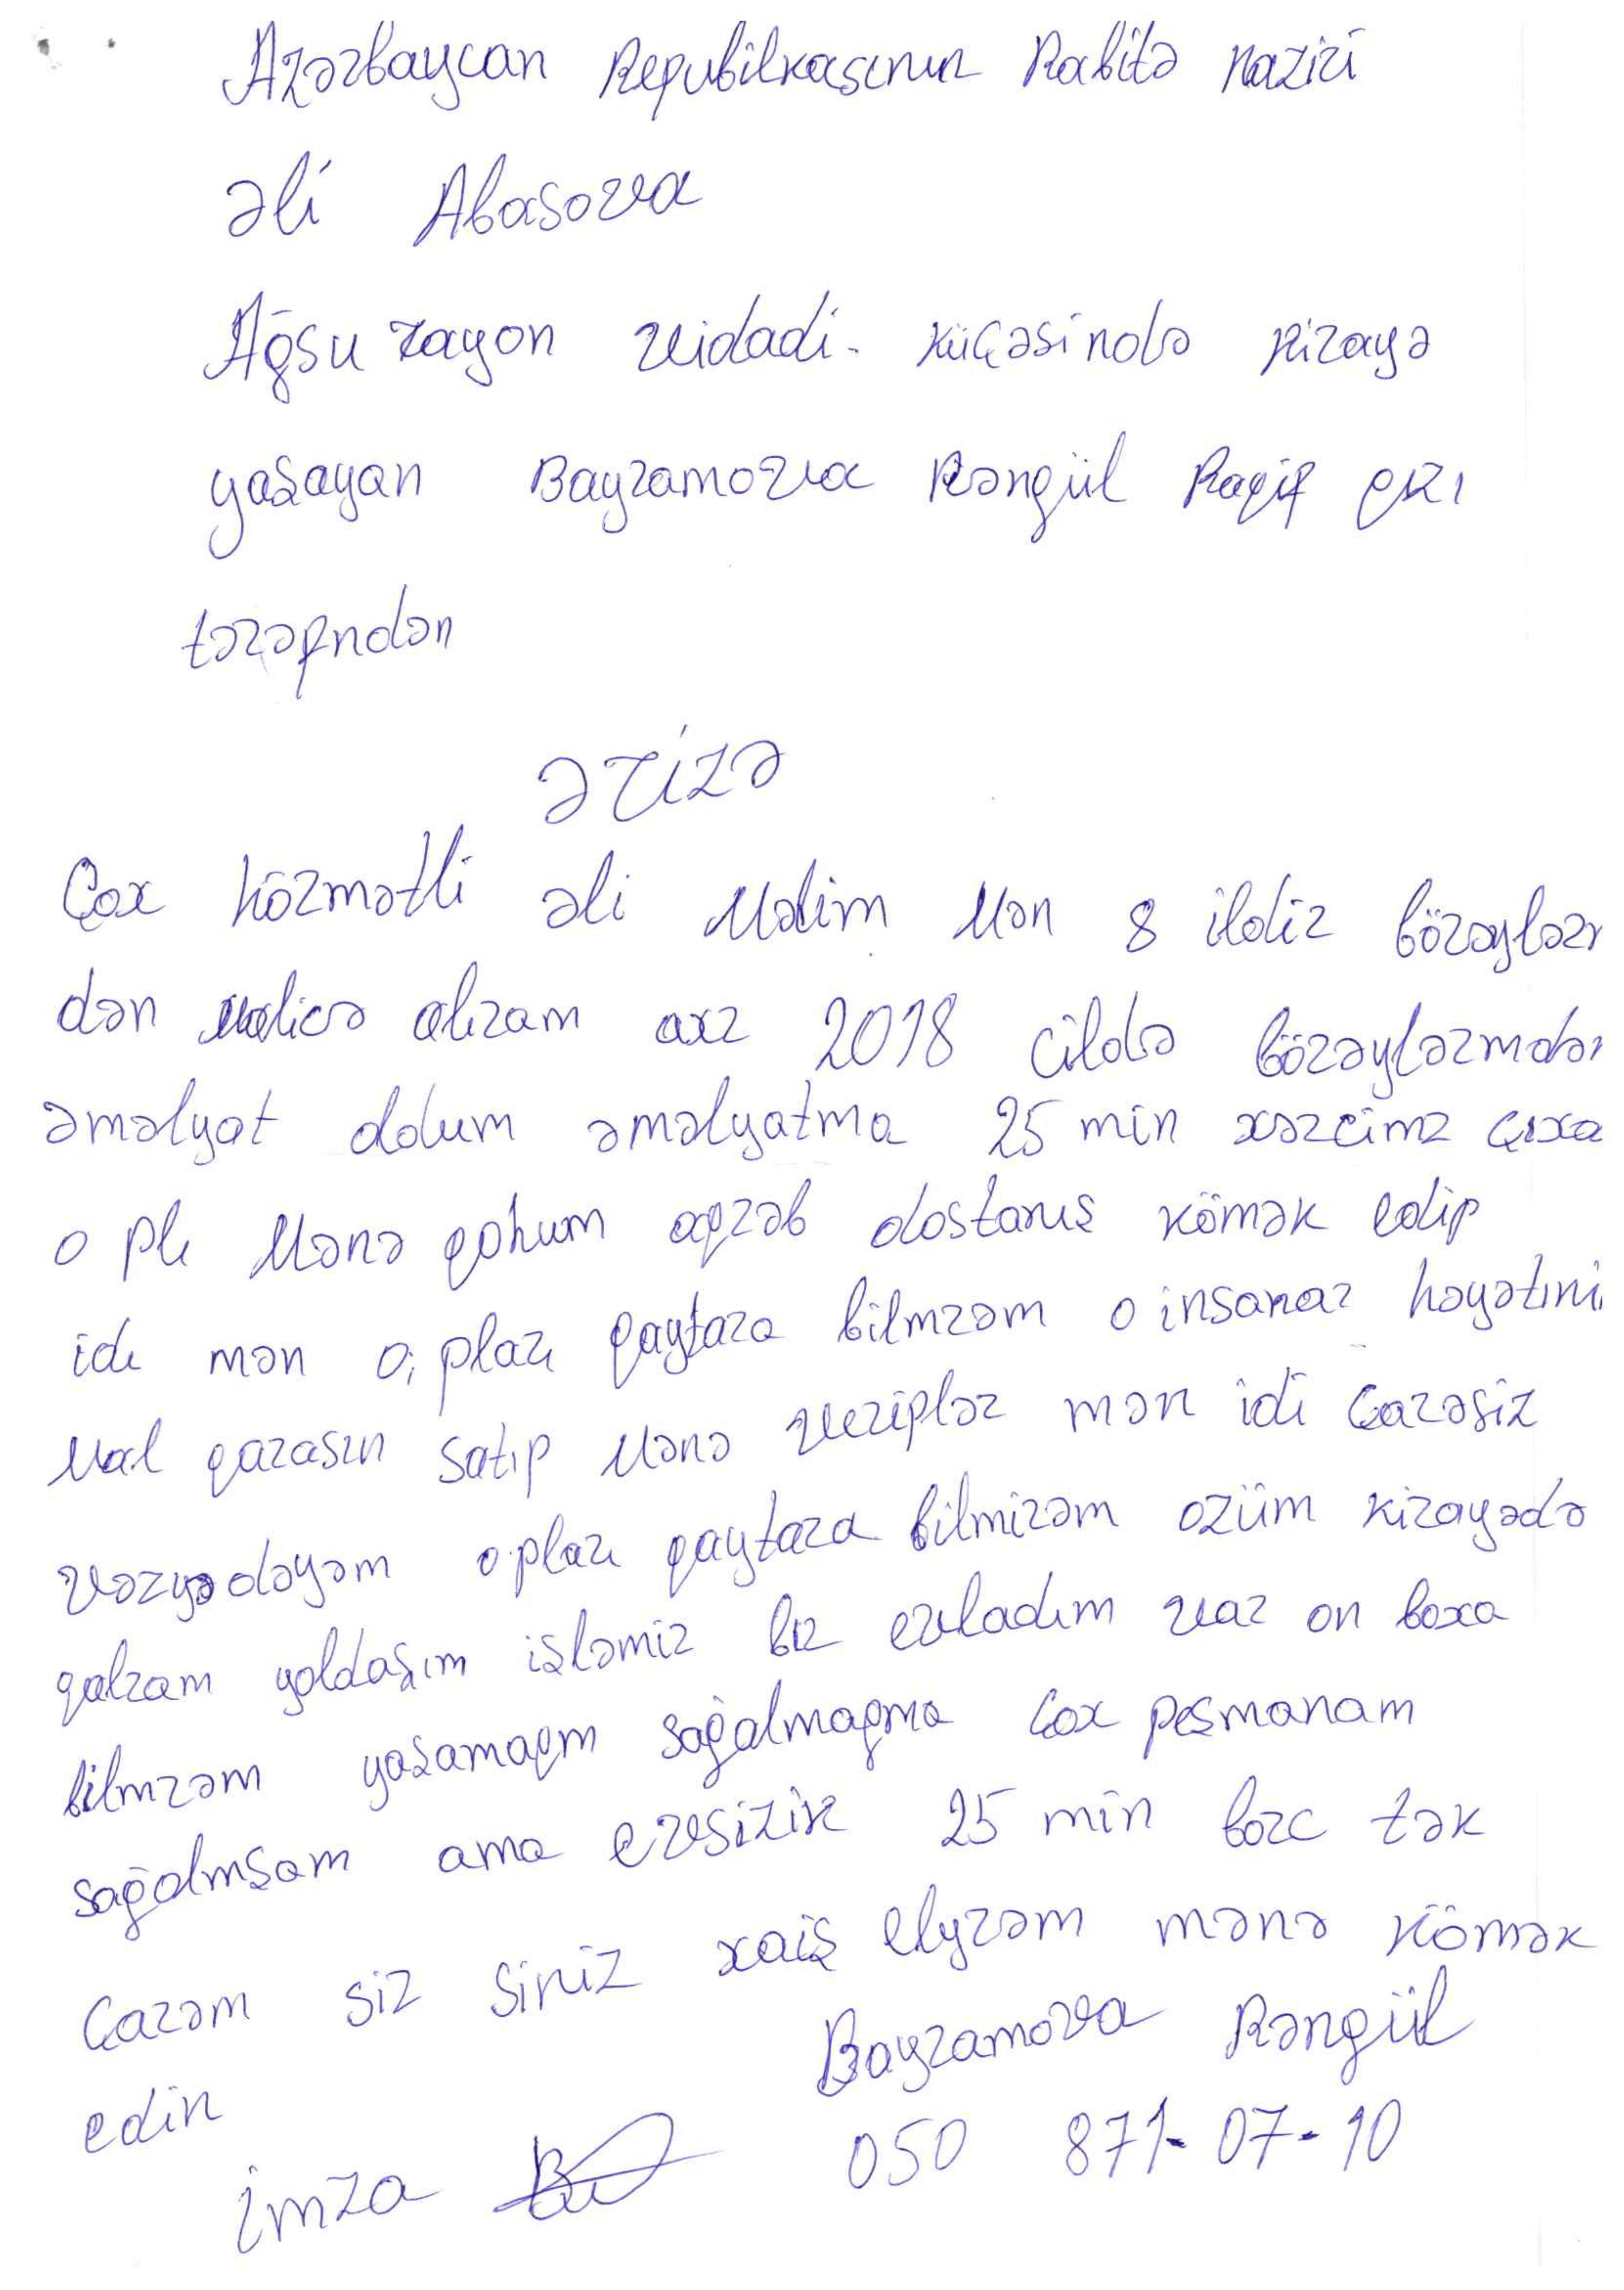 Azərbaycan Repubilkasının Rabitə naziri
əli Abasova
Ağsu rayon vidadi- küçəsində kirayə
yaşayan Bayramova Rəngül Raqif qızı
tərəfndən
ərizə
Çox hözmətli əli Məlim Mən 8 ildir böyrəylər
dən malicə alıram axr 2018 cildə böyrəylərmdən
əməlyat oldum əməlyatma 25 min xərcimz çıxa
o plı Mənə qohum aqrəb dostanış kömək edip
idi mən o, plaı qaytara bilmrəm o insanar həyətini
Mal qarasın satıp Mənə veriplər mən idi Çarəsiz
vəzyədəyəm o plaı qaytara bilmirəm ozüm kirayədə
qalram yoldaşım işləmir bir evladım var on boxa
bilmrəm yaşamaqm sağalmaqma Çox peşmanam
sağalmşam ama evsizik 25 min borc tək
Çarəm siz siniz xaiş elyrəm mənə kömək
edin Bayramova Rəngül
imza 050 871-07-10